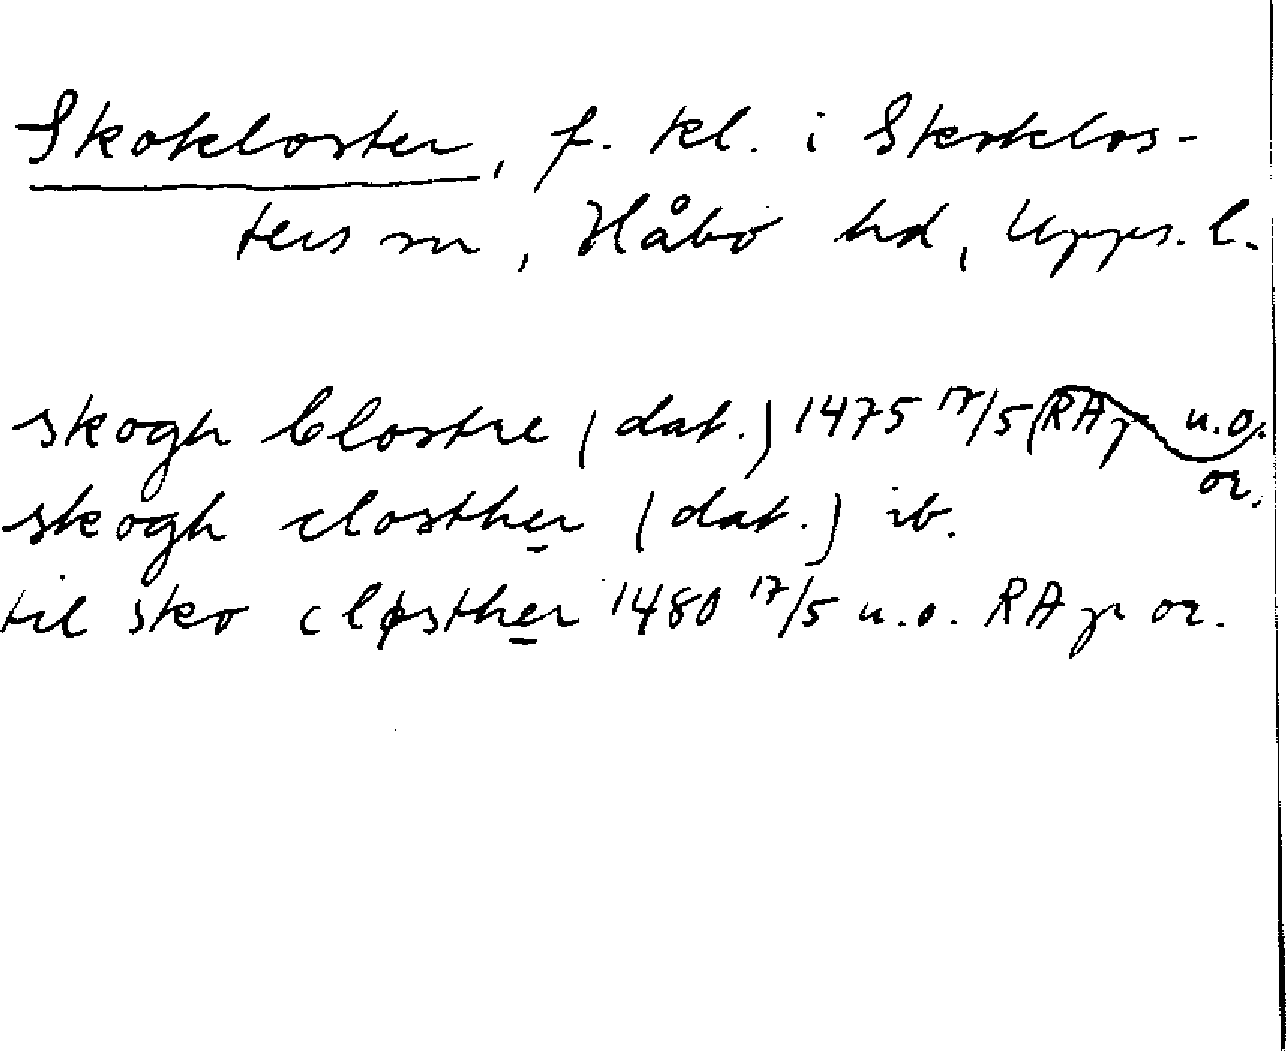 Skokloster, f. kl. i Skoklos-
ters sn, Håbo hd, Upps. l.
skogh Clostre (dat.) 1475 17/5 (RAp u.o.
or.
skogh closther (dat.) ib.
til sko cløsther 1480 17/5 u.o. RAp or.